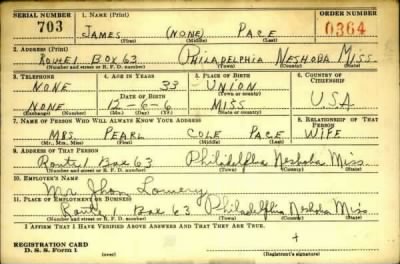 SERIAL NUMBER 1. NAME (Print) ORDER NUMBER
703 JAMES (NONE) PACE 0364
(First) (Middle) (Last)
2. ADDRESS (Print)
ROUTE 1 BOX 63 PHILADELPHIA NESHOBA MISS.
(Number and street or R. F. D. number) (Town) (County) (State)
3. TELEPHONE 4. AGE IN YEARS 5. PLACE OF BIRTH 6. COUNTRY OF CITIZENSHIP
NONE 33 UNION
DATE OF BIRTH (Town or county)
NONE 12-6-6 MISS USA
(Exchange) (Number) (Mo.) (Day) (Yr.) (State or country)
7. NAME OF PERSON WHO WILL ALWAYS KNOW YOUR ADDRESS 8. RELATIONSHIP OF THAT PERSON
MRS. PEARL COLE PACE WIFE
(Mr., Mrs., Miss) (First) (Middle) (Last)
9. ADDRESS OF THAT PERSON
Route 1 Box 63 Neshoba Miss.
(Number and street or R. F. D. number) (Town) (County) (State)
10. EMPLOYER'S NAME
Mr. Jhon
11. PLACE OF EMPLOYMENT OR BUSINESS
Route 1 Box 63 Philadelphia Miss
(Number and street or R. F. D. number) (Town) (County) (State)
I AFFIRM THAT I HAVE VERIFIED ABOVE ANSWERS AND THAT THEY ARE TRUE.
REGISTRATION CARD
D. S. S. Form 1 (Registrant's signature)